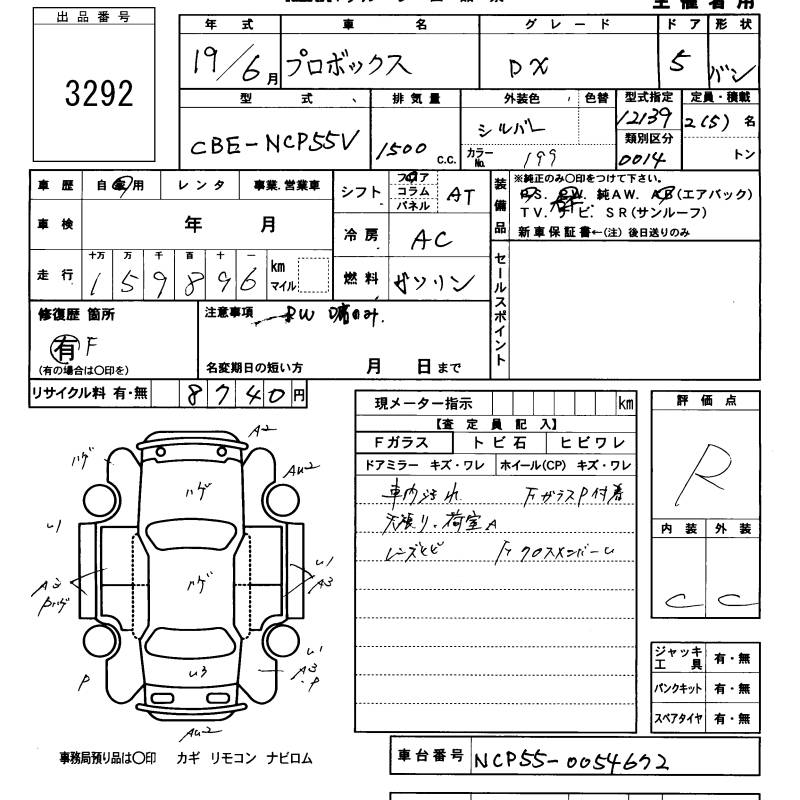 出品番号
3292
年式 車名 グレード ドア 形状
19/6月 プロボックス DX 5 バン
型式 排気量 外装色 色替 型式指定 定員・積載
CBE-NCP55V 1500 c.c. シルバー 12139 2(5)名
カラーNo. 199 類別区分 0014 トン
車歴 自家用 レンタ 事業.営業車
シフト フロア コラム パネル AT
装備品
※純正のみ○印をつけて下さい。
P.S. P.W. 純AW. AB(エアバック)
TV. ナビ. SR(サンルーフ)
新車保証書←(注) 後日送りのみ
車検 年 月
冷房 AC
走行 十万 万 千 百 十 一
159896 km マイル
燃料 ガソリン
セールスポイント
修復歴 箇所
有 F
(有の場合は○印を)
注意事項
名変期日の短い方 月 日まで
リサイクル料 有・無 8740円
現メーター指示 km
【査定員記入】
Fガラス トビ石 ヒビワレ
ドアミラー キズ・ワレ ホイール(CP) キズ・ワレ
車内汚れ FガラスP付着
天張り・荷室A
レンズヒビ
評価点
R
内装 外装
C C
ジャッキ 工具 有・無
パンクキット 有・無
スペアタイヤ 有・無
A2
ハゲ
AU2
ハゲ
U1
U1
A3
Pハゲ
ハゲ
A3
U1
U3
A3
P
P
AU2
事務局預り品は○印 カギ リモコン ナビロム
車台番号 NCP55-0054672